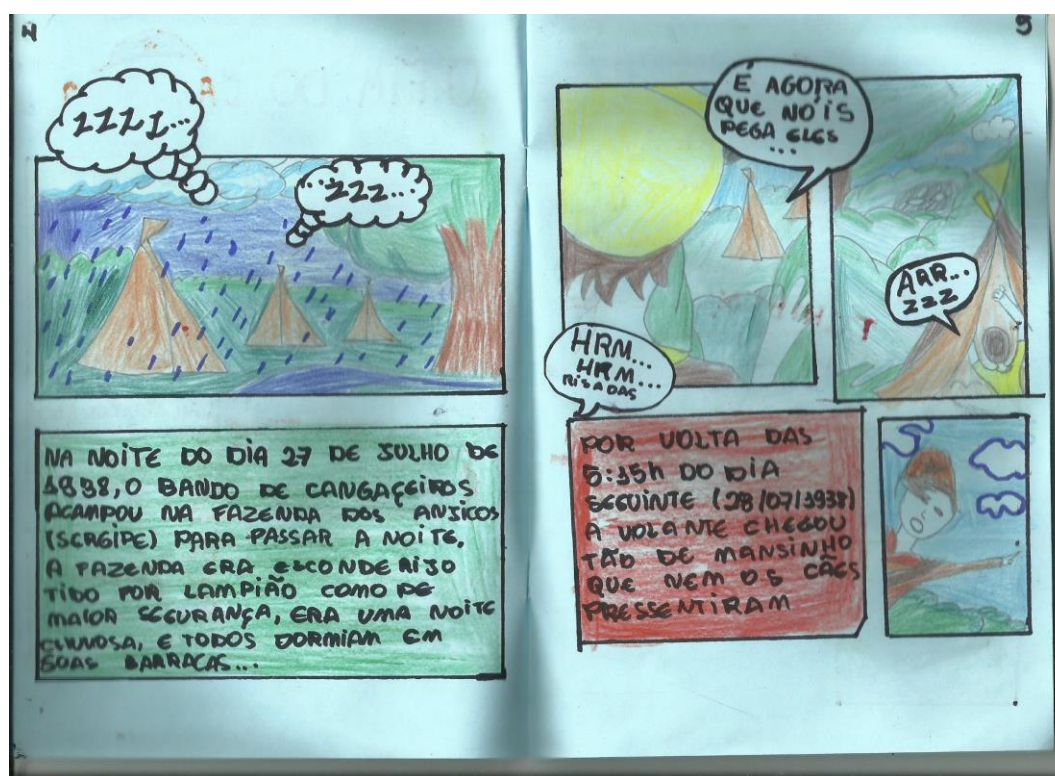 4
ZZZZ...
...ZZZ...
NA NOITE DO DIA 27 DE JULHO DE
1938, O BANDO DE CANGAÇEIROS
ACAMPOU NA FAZENDA DOS ANJICOS
(SERGIPE) PARA PASSAR A NOITE.
A FAZENDA ERA ESCONDERIJO
TIDO POR LAMPIÃO COMO DE
MAIOR SEGURANÇA, ERA UMA NOITE
CHUVOSA, E TODOS DORMIAM EM
SUAS BARRACAS...
5
É AGORA
QUE NÓIS
PEGA ELES
...
ARR...
ZZZ
HRM...
HRM...
RISADAS
POR VOLTA DAS
5:15h DO DIA
SEGUINTE (28/07/1938)
A VOLANTE CHEGOU
TÃO DE MANSINHO
QUE NEM OS CÃES
PRESSENTIRAM